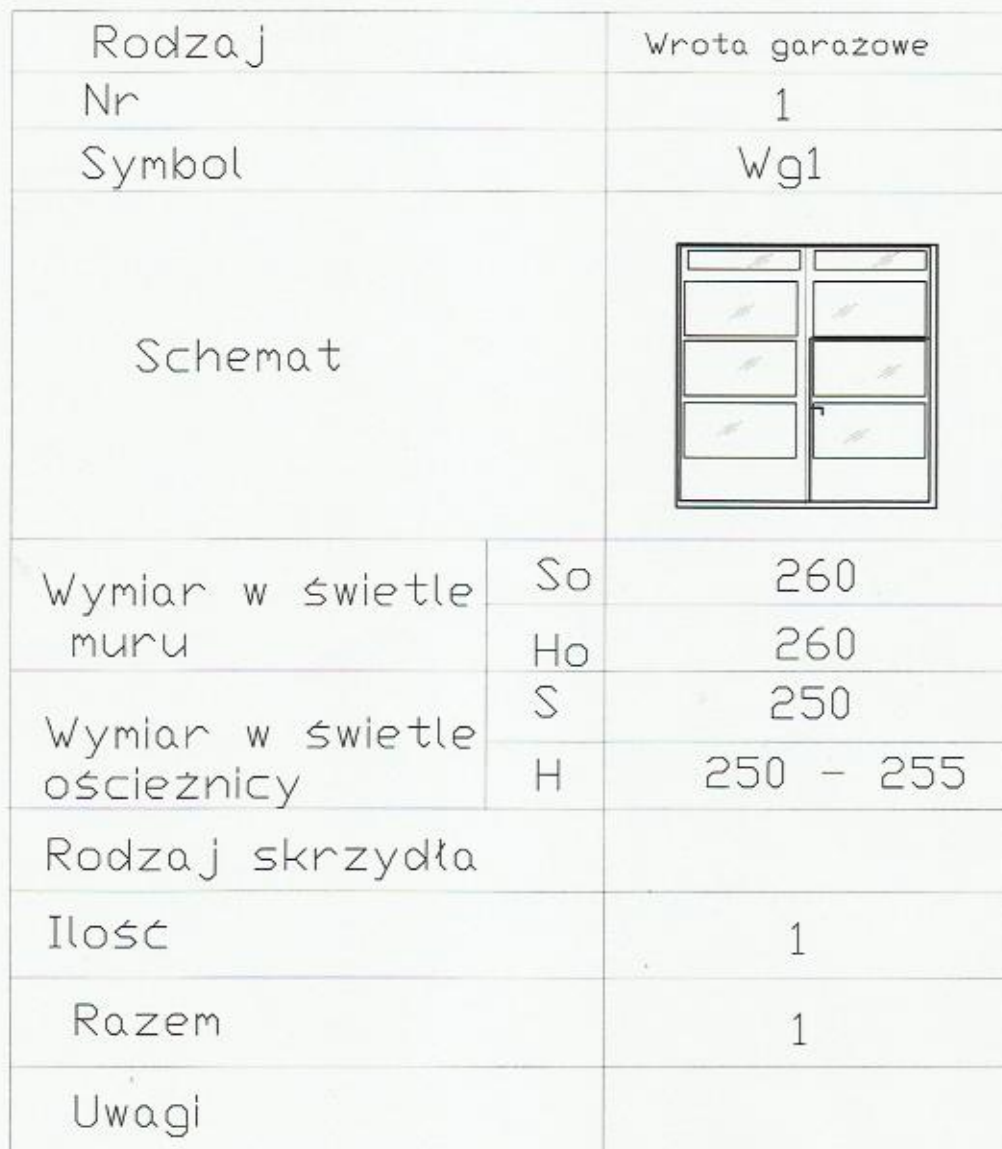 Rodzaj Wrota garażowe
Nr 1
Symbol Wg1
Schemat
Wymiar w świetle muru So 260
Ho 260
Wymiar w świetle ościeżnicy S 250
H 250 - 255
Rodzaj skrzydła
Ilość 1
Razem 1
Uwagi